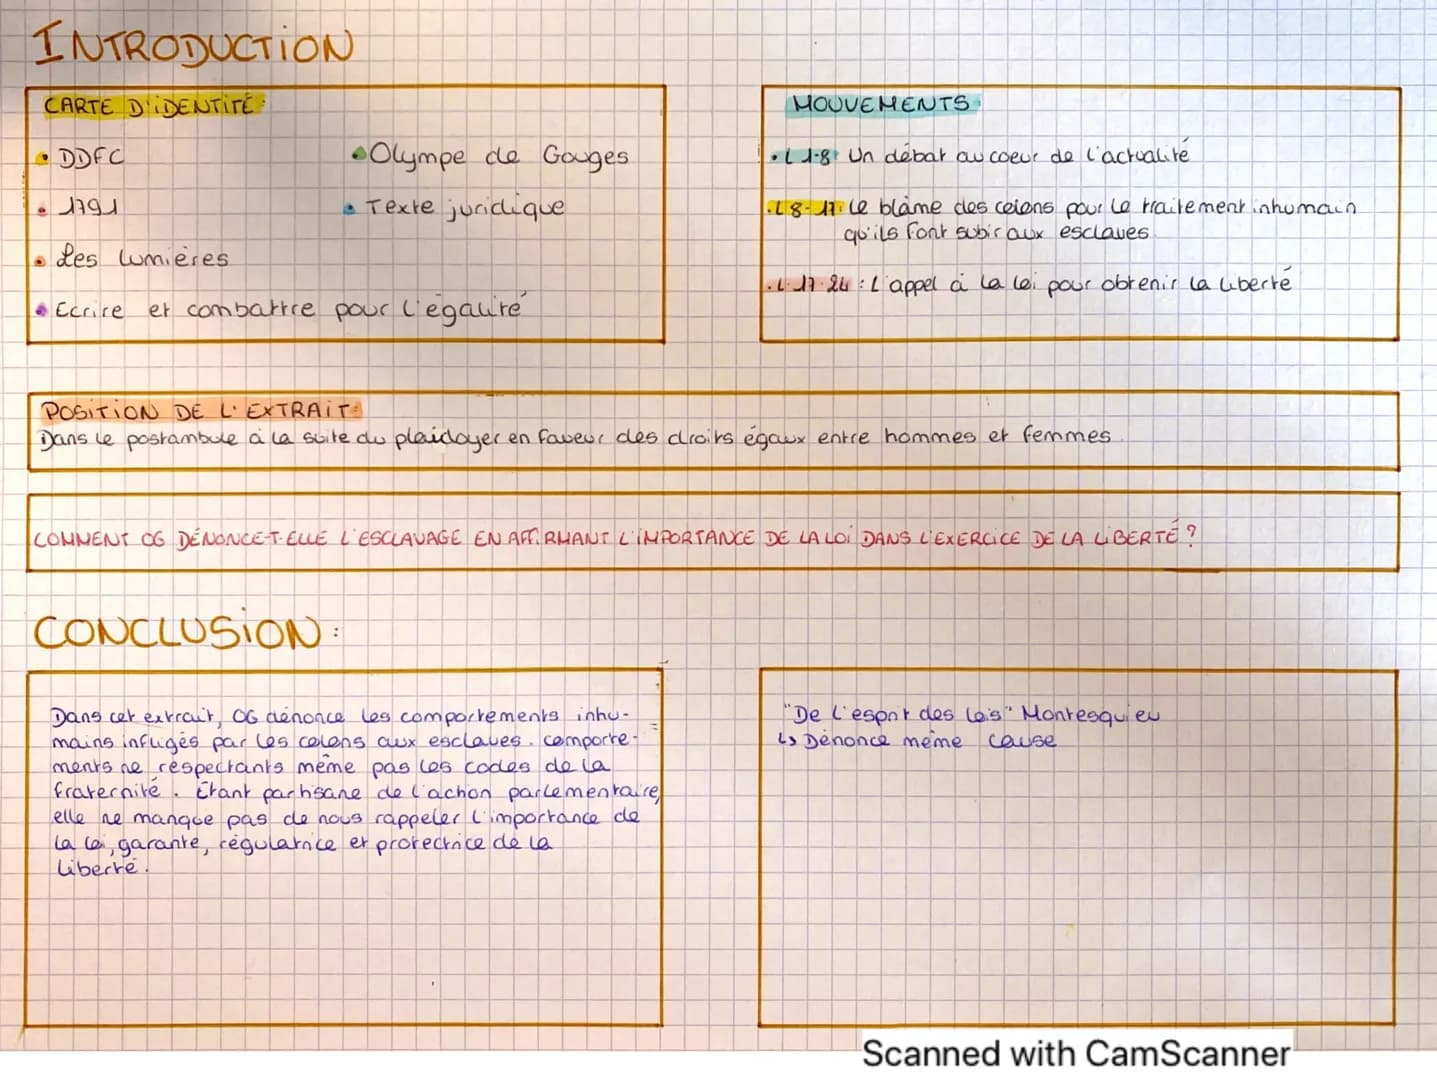 INTRODUCTION
CARTE D'IDENTITÉ:
• DDFC
• Olympe de Gouges
• 1791
• Texte juridique
• Les lumières
• Ecrire et combattre pour l'égalité
MOUVEMENTS
• L 1-8: Un débat au coeur de l'actualité
• L 8-17: Le blâme des colons pour le traitement inhumain
qu'ils font subir aux esclaves
• L 17-24 : L'appel à la loi pour obtenir la liberté
POSITION DE L'EXTRAIT:
Dans le postambule à la suite du plaidoyer en faveur des droits égaux entre hommes et femmes
COMMENT OG DÉNONCE-T-ELLE L'ESCLAVAGE EN AFFIRMANT L'IMPORTANCE DE LA LOI DANS L'EXERCICE DE LA LIBERTÉ ?
CONCLUSION :
Dans cet extrait, OG dénonce les comportements inhu-
mains infligés par les colons aux esclaves. comporte-
ments ne respectants même pas les codes de la
fraternité. Étant partisane de l'action parlementaire,
elle ne manque pas de nous rappeler l'importance de
la loi, garante, régulatrice et protectrice de la
liberté.
"De l'esprit des lois" Montesquieu
↳ Dénonce même cause
Scanned with CamScanner